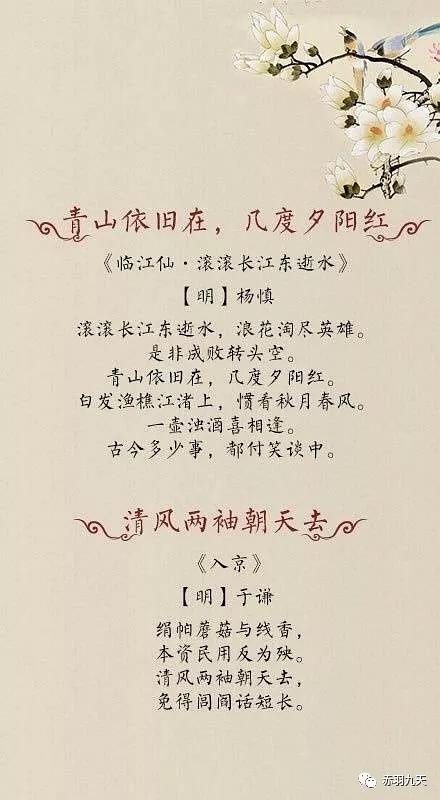 青山依旧在，几度夕阳红
《临江仙·滚滚长江东逝水》
【明】杨慎
滚滚长江东逝水，浪花淘尽英雄。
是非成败转头空。
青山依旧在，几度夕阳红。
白发渔樵江渚上，惯看秋月春风。
一壶浊酒喜相逢。
古今多少事，都付笑谈中。
清风两袖朝天去
《入京》
【明】于谦
绢帕蘑菇与线香，
本资民用反为殃。
清风两袖朝天去，
免得闾阎话短长。
赤羽九天